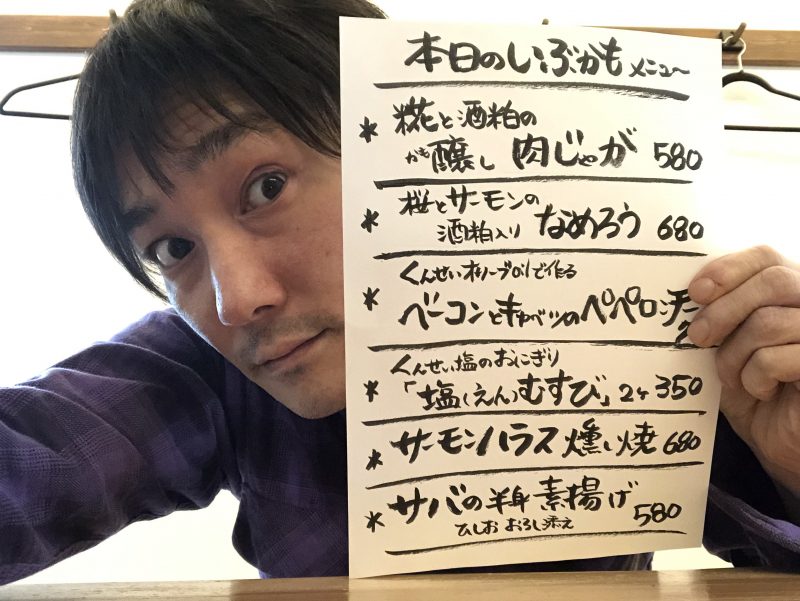 本日のいぶかもメニュー
* 糀と酒粕の
かも醸し 肉じゃが 580
* 桜とサーモンの
酒粕入り なめろう 680
くんせいオリーブOilで作る
* ベーコンとキャベツのペペロンチーノ
くんせい塩のおにぎり
* 「塩(えん)むすび」2ヶ 350
* サーモンハラス 燻し焼 680
* サバの半身 素揚げ
ひしお おろし添え 580